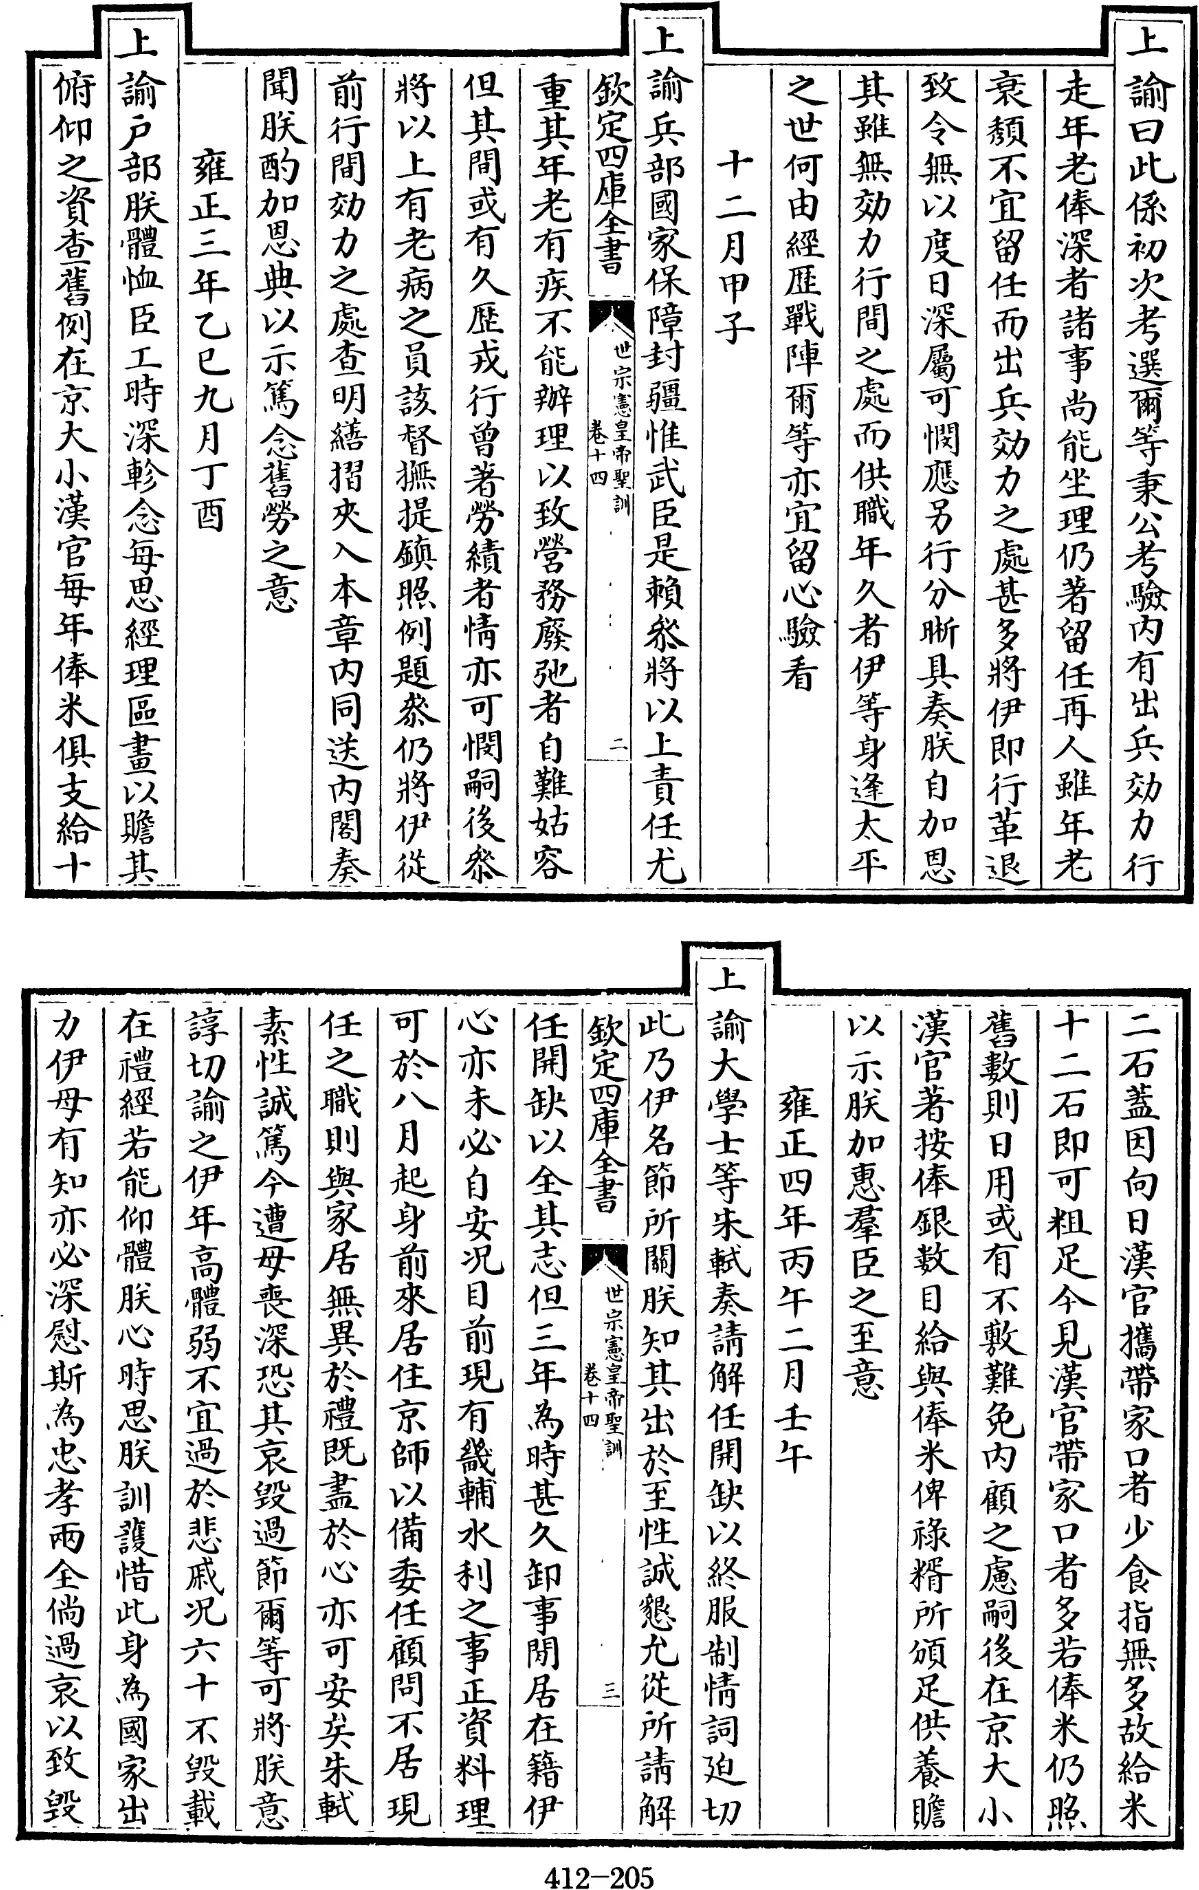 上諭曰此係初次考選爾等秉公考驗内有出兵効力行
走年老俸深者諸事尚能坐理仍著留任再人雖年老
衰頽不宜留任而出兵効力之處甚多將伊即行革退
致令無以度日深屬可憫應另行分晰具奏朕自加恩
其雖無効力行間之處而供職年久者伊等身逢太平
之世何由經歴戰陣爾等亦宜留心驗看
十二月甲子
上諭兵部國家保障封疆惟武臣是賴叅將以上責任尤
欽定四庫全書
世宗憲皇帝聖訓
卷十四
二
重其年老有疾不能辦理以致營務廢弛者自難姑容
但其間或有久歴戎行曾著勞績者情亦可憫嗣後叅
將以上有老病之員該督撫提鎮照例題叅仍將伊從
前行間効力之處查明繕摺夾入本章内同送内閣奏
聞朕酌加恩典以示篤念舊勞之意
雍正三年乙巳九月丁酉
上諭户部朕體恤臣工時深軫念每思經理區畫以贍其
俯仰之資查舊例在京大小漢官每年俸米俱支給十
二石蓋因向日漢官攜帶家口者少食指無多故給米
十二石即可粗足今見漢官帶家口者多若俸米仍照
舊數則日用或有不敷難免内顧之慮嗣後在京大小
漢官著按俸銀數目給與俸米俾祿糈所頒足供養贍
以示朕加惠羣臣之至意
雍正四年丙午二月壬午
上諭大學士等朱軾奏請解任開缺以終服制情詞廹切
此乃伊名節所關朕知其出於至性誠懇允從所請解
欽定四庫全書
世宗憲皇帝聖訓
卷十四
三
任開缺以全其志但三年為時甚久卸事閒居在籍伊
心亦未必自安况目前現有畿輔水利之事正資料理
可於八月起身前來居住京師以備委任顧問不居現
任之職則與家居無異於禮既盡於心亦可安矣朱軾
素性誠篤今遭母喪深恐其哀毀過節爾等可將朕意
諄切諭之伊年高體弱不宜過於悲戚况六十不毀載
在禮經若能仰體朕心時思朕訓護惜此身為國家出
力伊母有知亦必深慰斯為忠孝兩全倘過哀以致毀
412-205